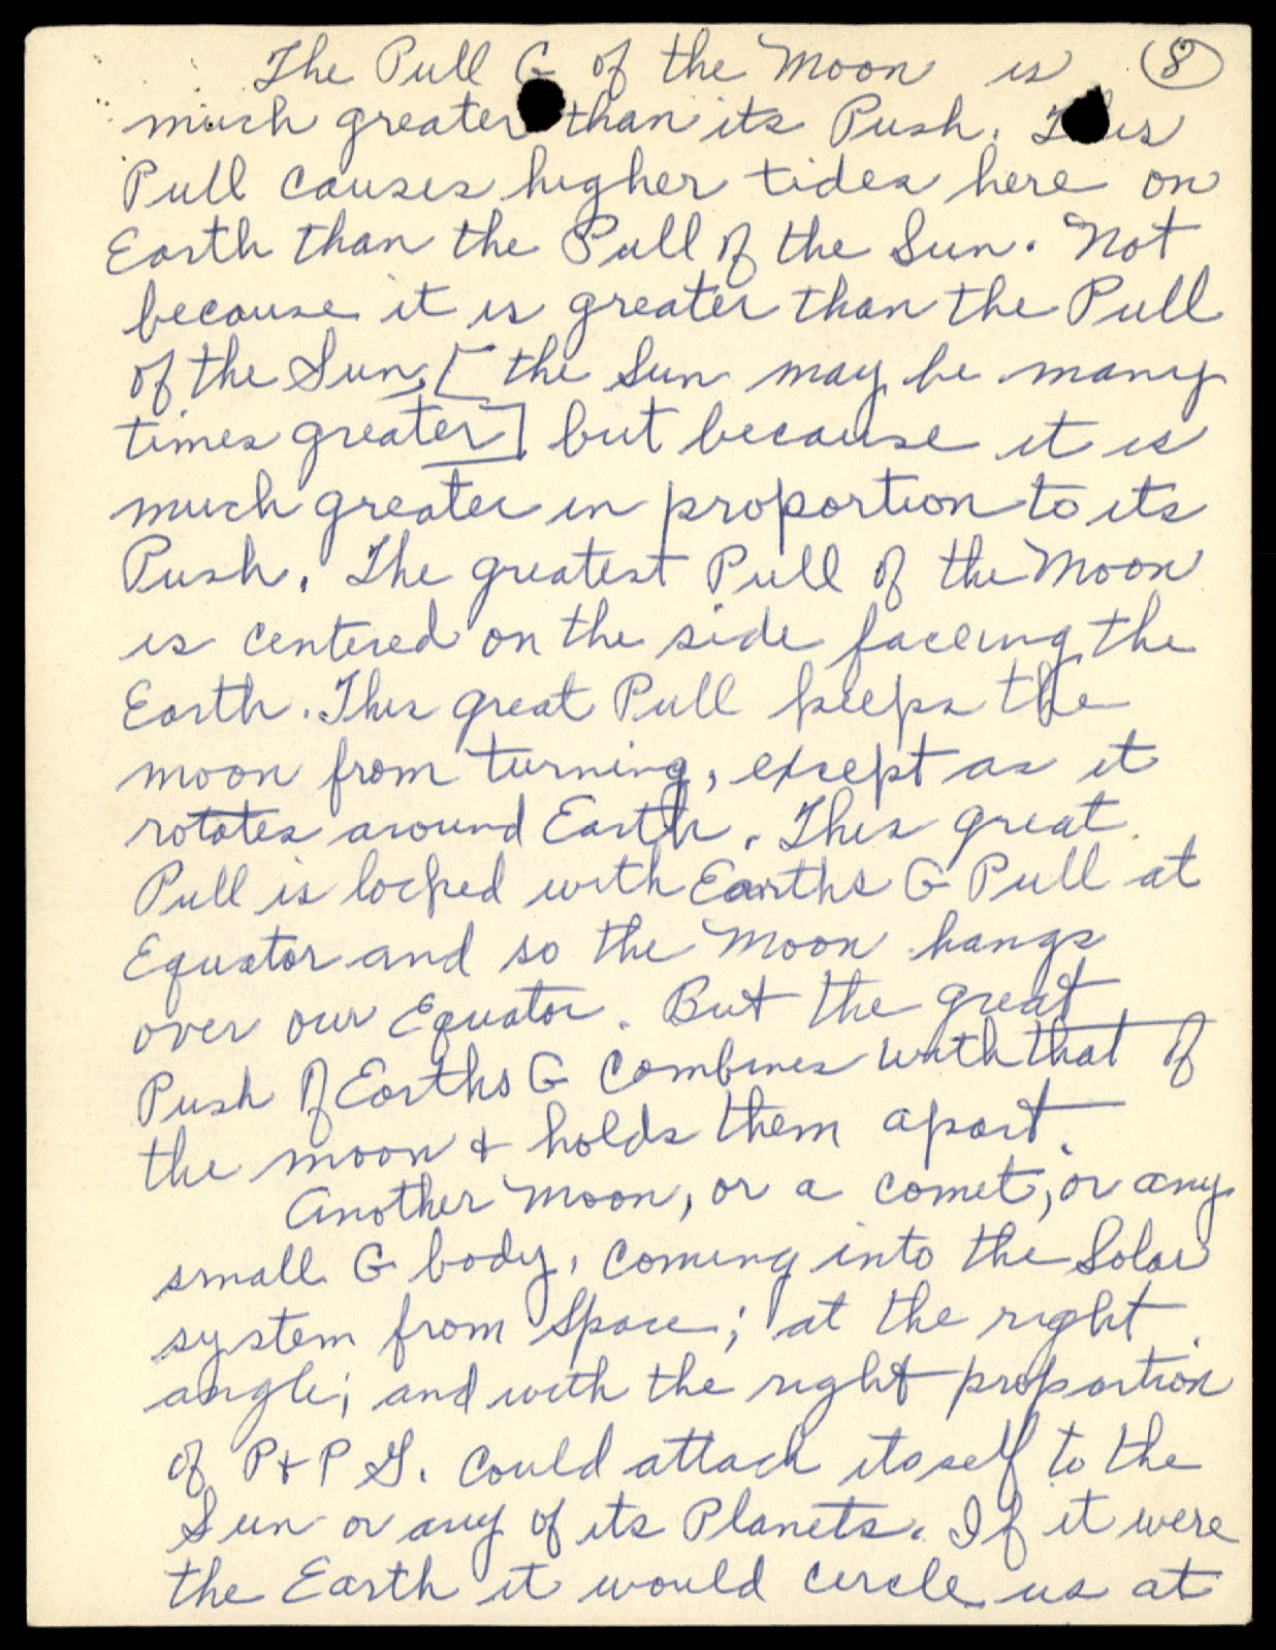 The Pull G of the Moon is 8
much greater than its Push. This
Pull causes higher tides here on
Earth than the Pull of the Sun. Not
because it is greater than the Pull
of the Sun, [the Sun may be many
times greater] but because it is
much greater in proportion to its
Push. The greatest Pull of the Moon
is centered on the side faceing the
Earth. This great Pull keeps the
moon from turning, except as it
rotates around Earth. This great
Pull is locked with Earths G Pull at
Equator and so the Moon hangs
over our Equator. But the great
Push of Earths G combines with that of
the moon & holds them apart.
Another Moon, or a comet, or any
small G body, coming into the Solar
system from Space; at the right
angle; and with the right proportion
of P & P G. could attach itsself to the
Sun or any of its Planets. If it were
the Earth it would circle us at